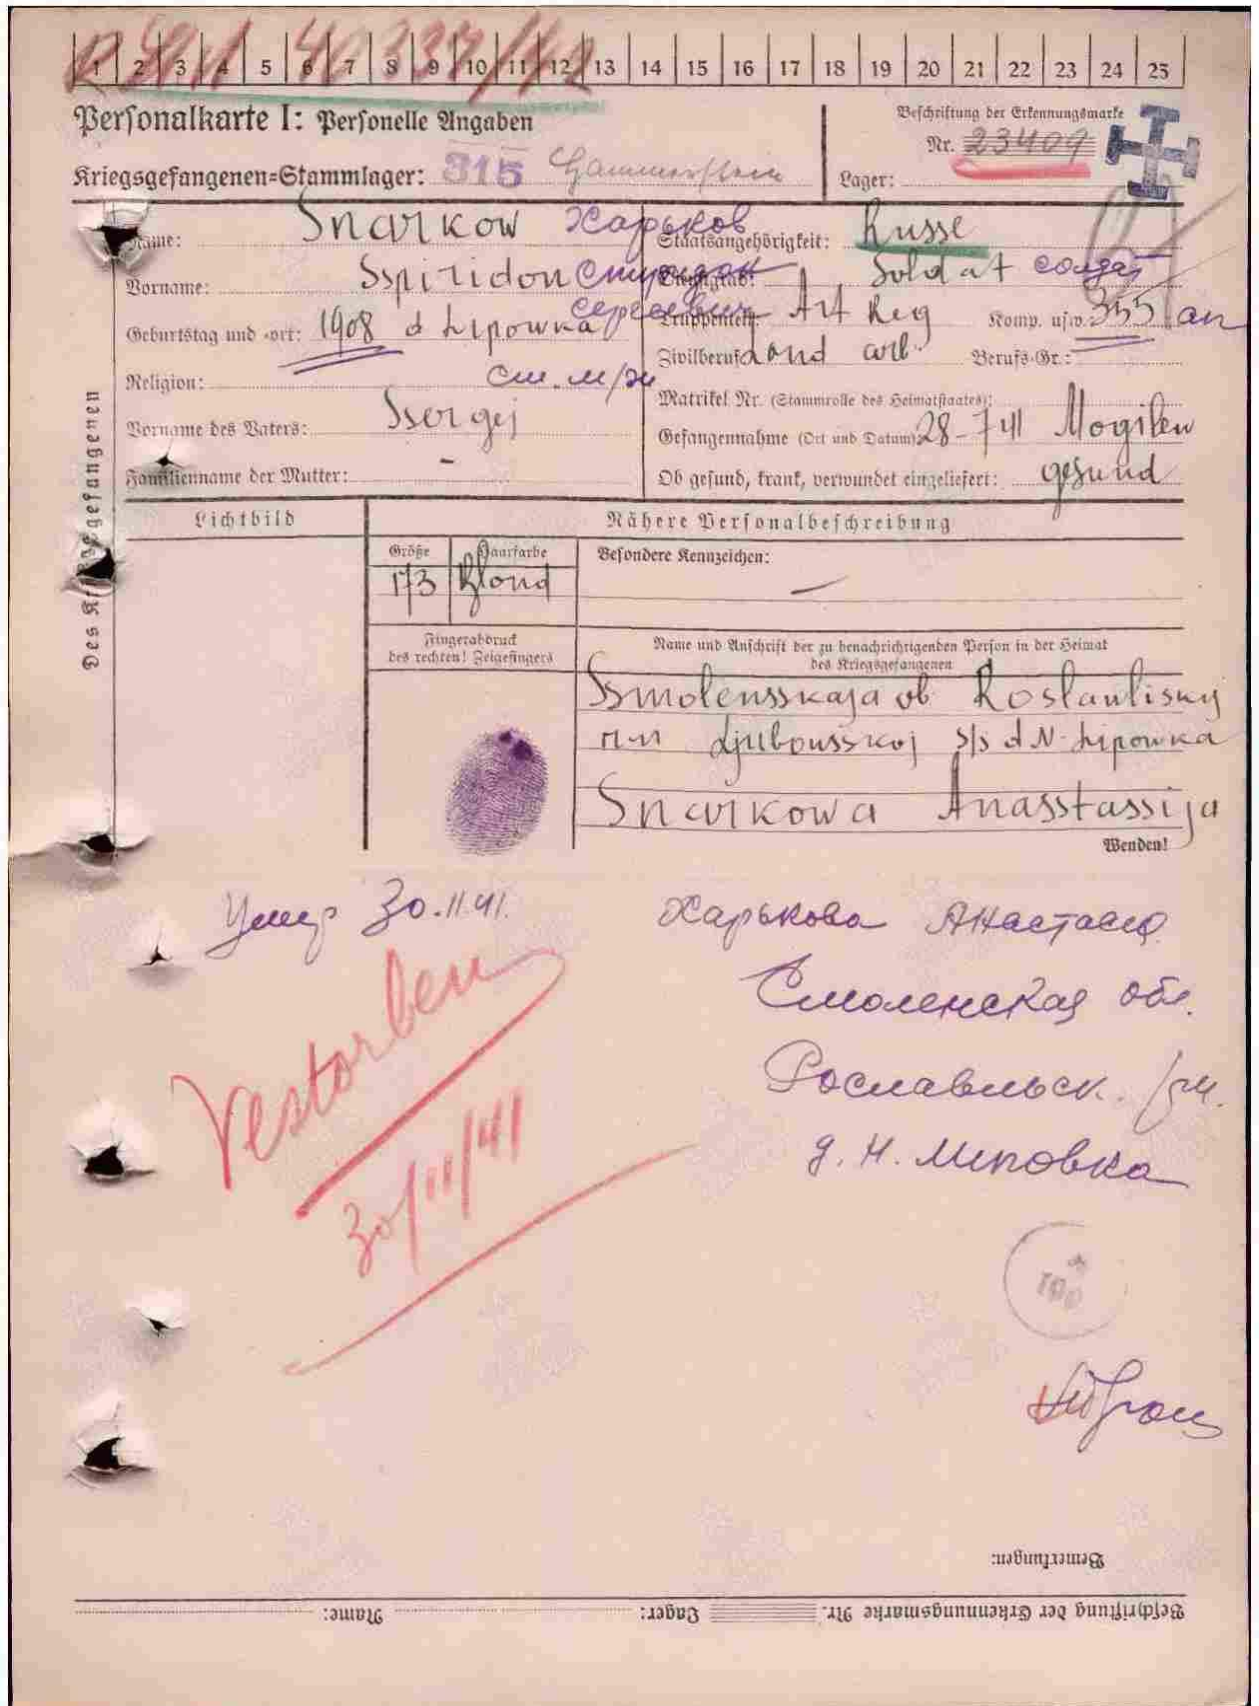 1 2 3 4 5 6 7 8 9 10 11 12 13 14 15 16 17 18 19 20 21 22 23 24 25
Personalkarte I: Personelle Angaben
Beschriftung der Erkennungsmarke
Nr. 23409
Kriegsgefangenen-Stammlager: 315 Hammerstein
Lager:
Des Kriegsgefangenen
Name: Snarkow Харьков
Vorname: Sspiridon Спиридон
Сергеевич
Geburtstag und -ort: 1908 d Lipowka
Religion: См. м/ж
Vorname des Vaters: Ssergej
Familienname der Mutter: -
Staatsangehörigkeit: Russe
Dienstgrad: Soldat солдат
Truppenteil: Art Reg Komp. usw.: 355 ап
Zivilberuf: Land arb. Berufs-Gr.:
Matrikel Nr. (Stammrolle des Heimatstaates):
Gefangennahme (Ort und Datum) 28-7 41 Mogilew
Ob gesund, krank, verwundet eingeliefert: gesund
Lichtbild
Nähere Personalbeschreibung
Größe
173
Haarfarbe
Blond
Besondere Kennzeichen:
—
Fingerabdruck
des rechten! Zeigefingers
Name und Anschrift der zu benachrichtigenden Person in der Heimat
des Kriegsgefangenen
Ssmolensskaja ob Roslawlisky
Ljubowsskoj s/s d N-Lipowka
Snarkowa Anasstassija
Wenden!
Умер 30.11.41.
Харькова Анастасия
Смоленская обл.
Рославльск.
д. Н. Липовка
Vestorben
30/11/41
Bemerkungen:
Beschriftung der Erkennungsmarke Nr. Lager: Name: